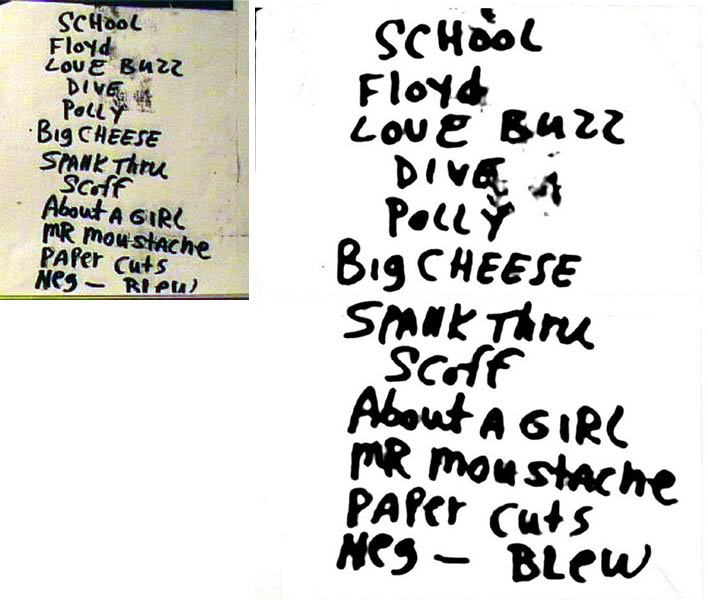 SCHOOL
Floyd
LOVE BUZZ
DIVE
POLLY
Big CHEESE
SPANK Thru
Scoff
About A GIRL
MR moustache
PAPer cuts
Neg — BLew
SCHOOL
Floyd
LOVE BUZZ
DIVE
POLLY
Big CHEESE
SPANK Thru
Scoff
About A GIRL
MR moustache
PAPer cuts
Neg — BLew